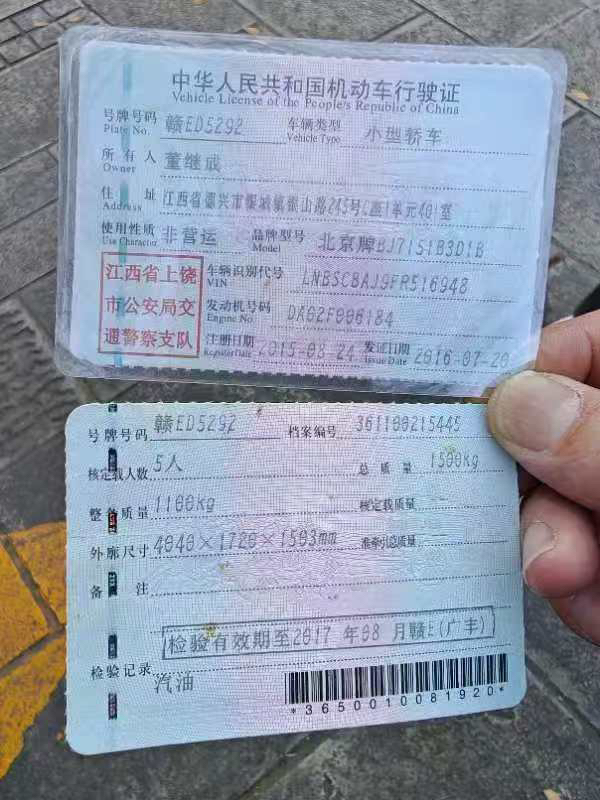 中华人民共和国机动车行驶证
Vehicle License of the People's Republic of China
号牌号码 赣ED5292 车辆类型 小型轿车
Plate No. Vehicle Type
所有人 董继成
Owner
住址 江西省德兴市银城镇银山路245号C座1单元401室
Address
使用性质 非营运 品牌型号 北京牌BJ7151B3D1B
Use Character Model
江西省上饶
市公安局交
通警察支队
车辆识别代号 LNBSCBAJ9FR516948
VIN
发动机号码 DA02F006184
Engine No.
注册日期 2015-08-24 发证日期 2016-07-20
Register Date Issue Date
号牌号码 赣ED5292 档案编号 361100215445
核定载人数 5人 总质量 1500kg
整备质量 1100kg 核定载质量
外廓尺寸 4040×1720×1503mm 准牵引总质量
备注
检验有效期至2017 年08 月赣E(广丰)
检验记录
汽油
*3650010081920*